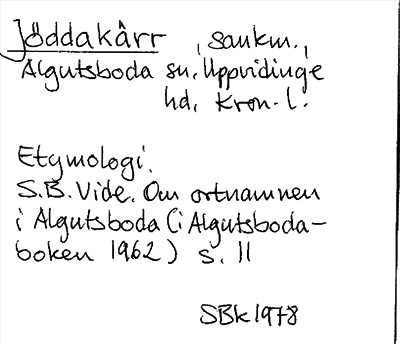 Jöddakärr , sankm.,
Algutsboda sn, Uppvidinge
hd, Kron. l.
Etymologi.
S.B. Vide. Om ortnamnen
i Algutsboda (i Algutsboda-
boken 1962) s. 11
SBk 1978